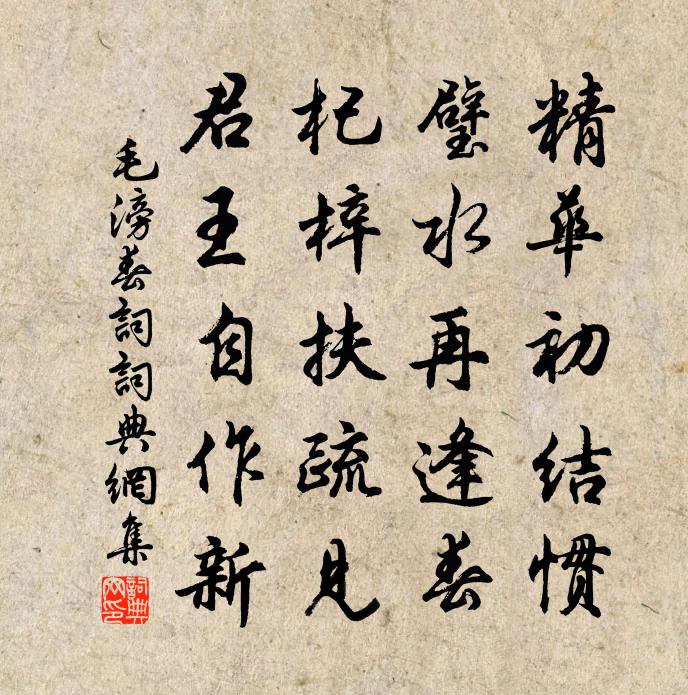 精華初結慣
璧水再逢春
杞梓扶疏見
君王自作新
毛滂春詞詞典網集
詞典網印